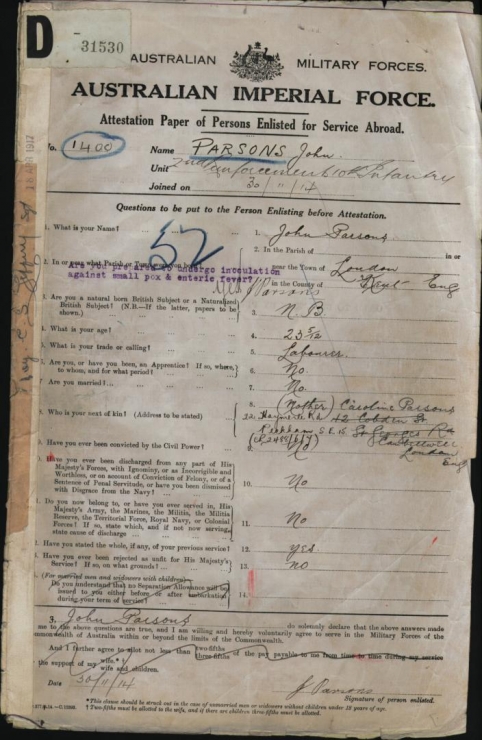 D
31530
AUSTRALIAN MILITARY FORCES.
AUSTRALIAN IMPERIAL FORCE.
Attestation Paper of Persons Enlisted for Service Abroad.
No. 1400
Name PARSONS John.
Unit 2nd Reinforcement 10th Infantry
Joined on 30/11/14
Questions to be put to the Person Enlisting before Attestation.
1. What is your Name? ... 1. John Parsons
52
2. In or near what Parish or Town were you born? 2. In the Parish of in or
near the Town of London
in the County of Kent Eng
Are you prepared to undergo inoculation
against small pox & enteric fever?
Yes J Parsons
3. Are you a natural born British Subject or a Naturalized
British Subject? (N.B.—If the latter, papers to be
shown.) 3. N.B.
4. What is your age? 4. 23 5/12
5. What is your trade or calling? 5. Labourer.
6. Are you, or have you been, an Apprentice? If so, where,
to whom, and for what period? 6. No.
7. Are you married? 7. No.
8. Who is your next of kin? (Address to be stated) 8. (Mother) Caroline Parsons
22 42 Cobden St
Peckham S.E. 15 St Georges Rd
London
Eng
9. Have you ever been convicted by the Civil Power? 9. No
10. Have you ever been discharged from any part of His
Majesty's Forces, with Ignominy, or as Incorrigible and
Worthless, or on account of Conviction of Felony, or of a
Sentence of Penal Servitude, or have you been dismissed
with Disgrace from the Navy? 10. No
11. Do you now belong to, or have you ever served in, His
Majesty's Army, the Marines, the Militia, the Militia
Reserve, the Territorial Force, Royal Navy, or Colonial
Forces? If so, state which, and if not now serving,
state cause of discharge 11. No
12. Have you stated the whole, if any, of your previous service? 12. yes
13. Have you ever been rejected as unfit for His Majesty's
Service? If so, on what grounds? 13. no
(For married men and widowers with children)
Do you understand that no Separation Allowance will be
issued to you either before or after embarkation
during your term of service? 14.
3. John Parsons do solemnly declare that the above answers made
by me to the above questions are true, and I am willing and hereby voluntarily agree to serve in the Military Forces of the
Commonwealth of Australia within or beyond the limits of the Commonwealth.
And I further agree to allot not less than two-fifths three-fifths of the pay payable to me from time to time during my service
for the support of my wife.* wife and children.
Date 30/11/14
J Parsons
Signature of person enlisted.
*This clause should be struck out in the case of unmarried men or widowers without children under 18 years of age.
† Two-fifths must be allotted to the wife, and if there are children three-fifths must be allotted.